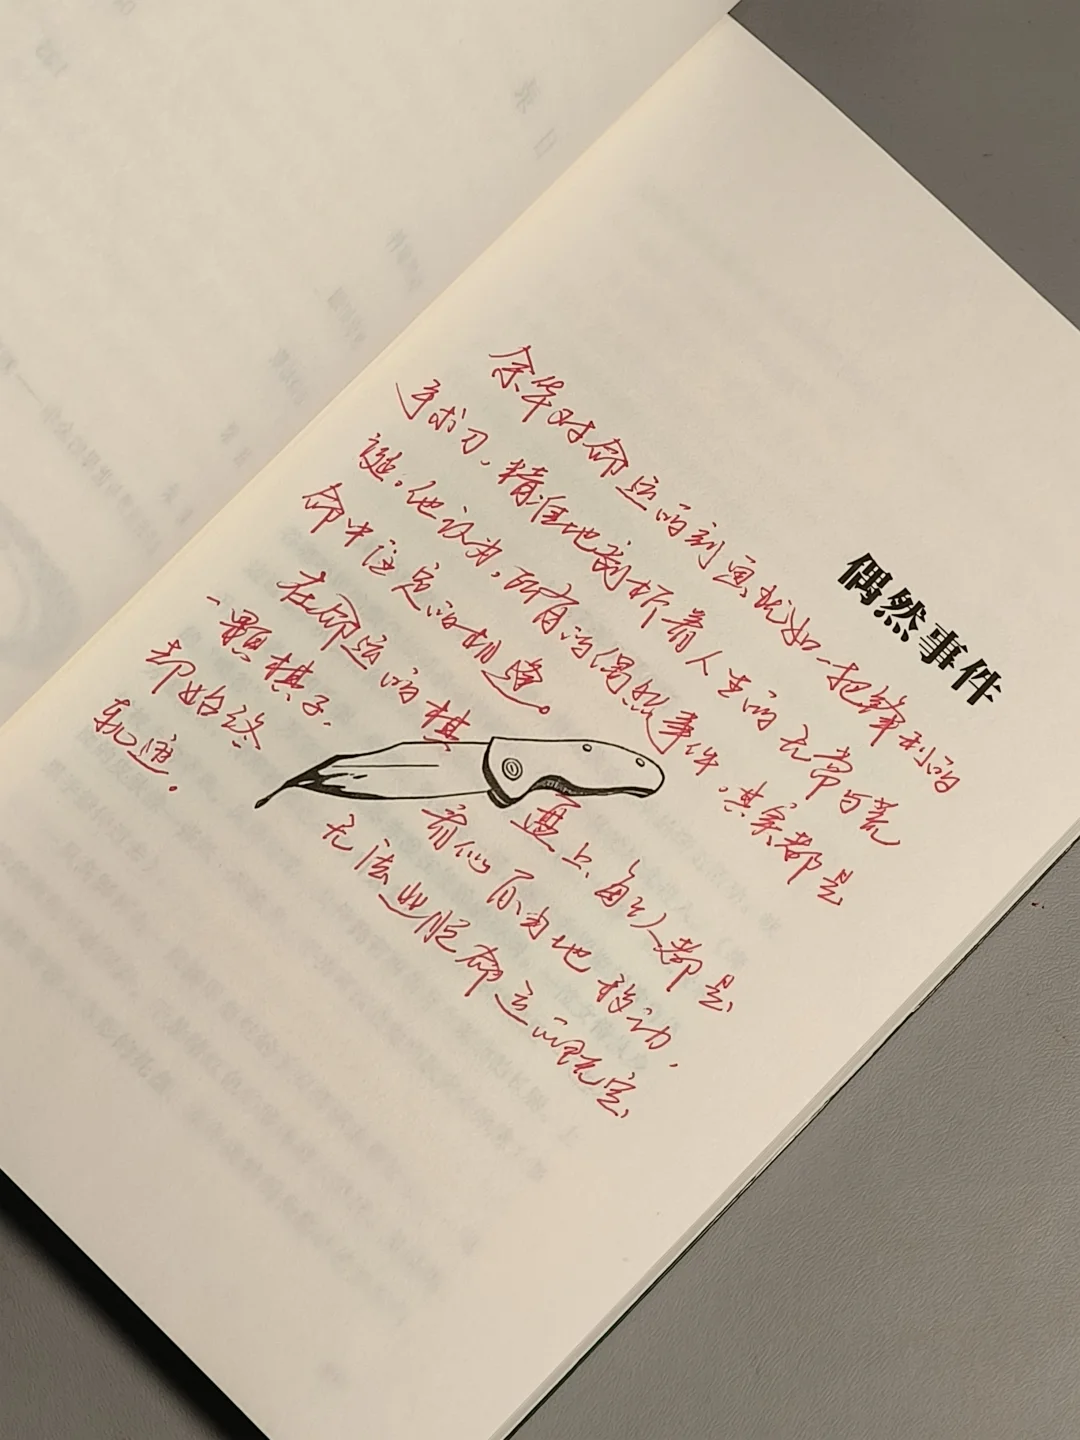 偶然事件
余华对命运的刻画,犹如一把锋利的
手术刀,精准地剖析着人生的无常与荒
诞。他认为,所有的偶然事件,其实都是
命中注定的相逢。
在命运的棋盘上,每个人都是
一颗棋子,看似自由地移动,
却始终无法逃脱命运的既定
轨道.